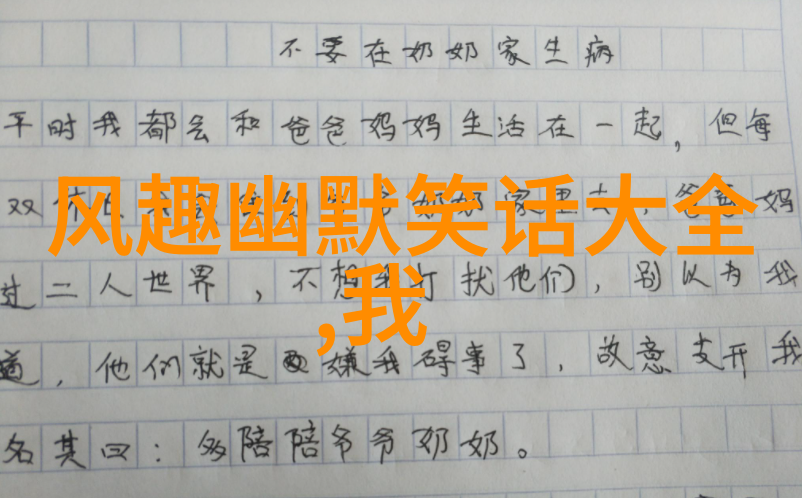 不要在奶奶家生病
平时我都会和爸爸妈妈生活在一起,但每
双休奶奶家里去,爸爸妈
风趣幽默笑话大全
过二人世界,不想我打扰他们,别以为我
,我
道,他们就是嫌我碍事了,故意支开我
名其曰:多陪陪爷爷奶奶。